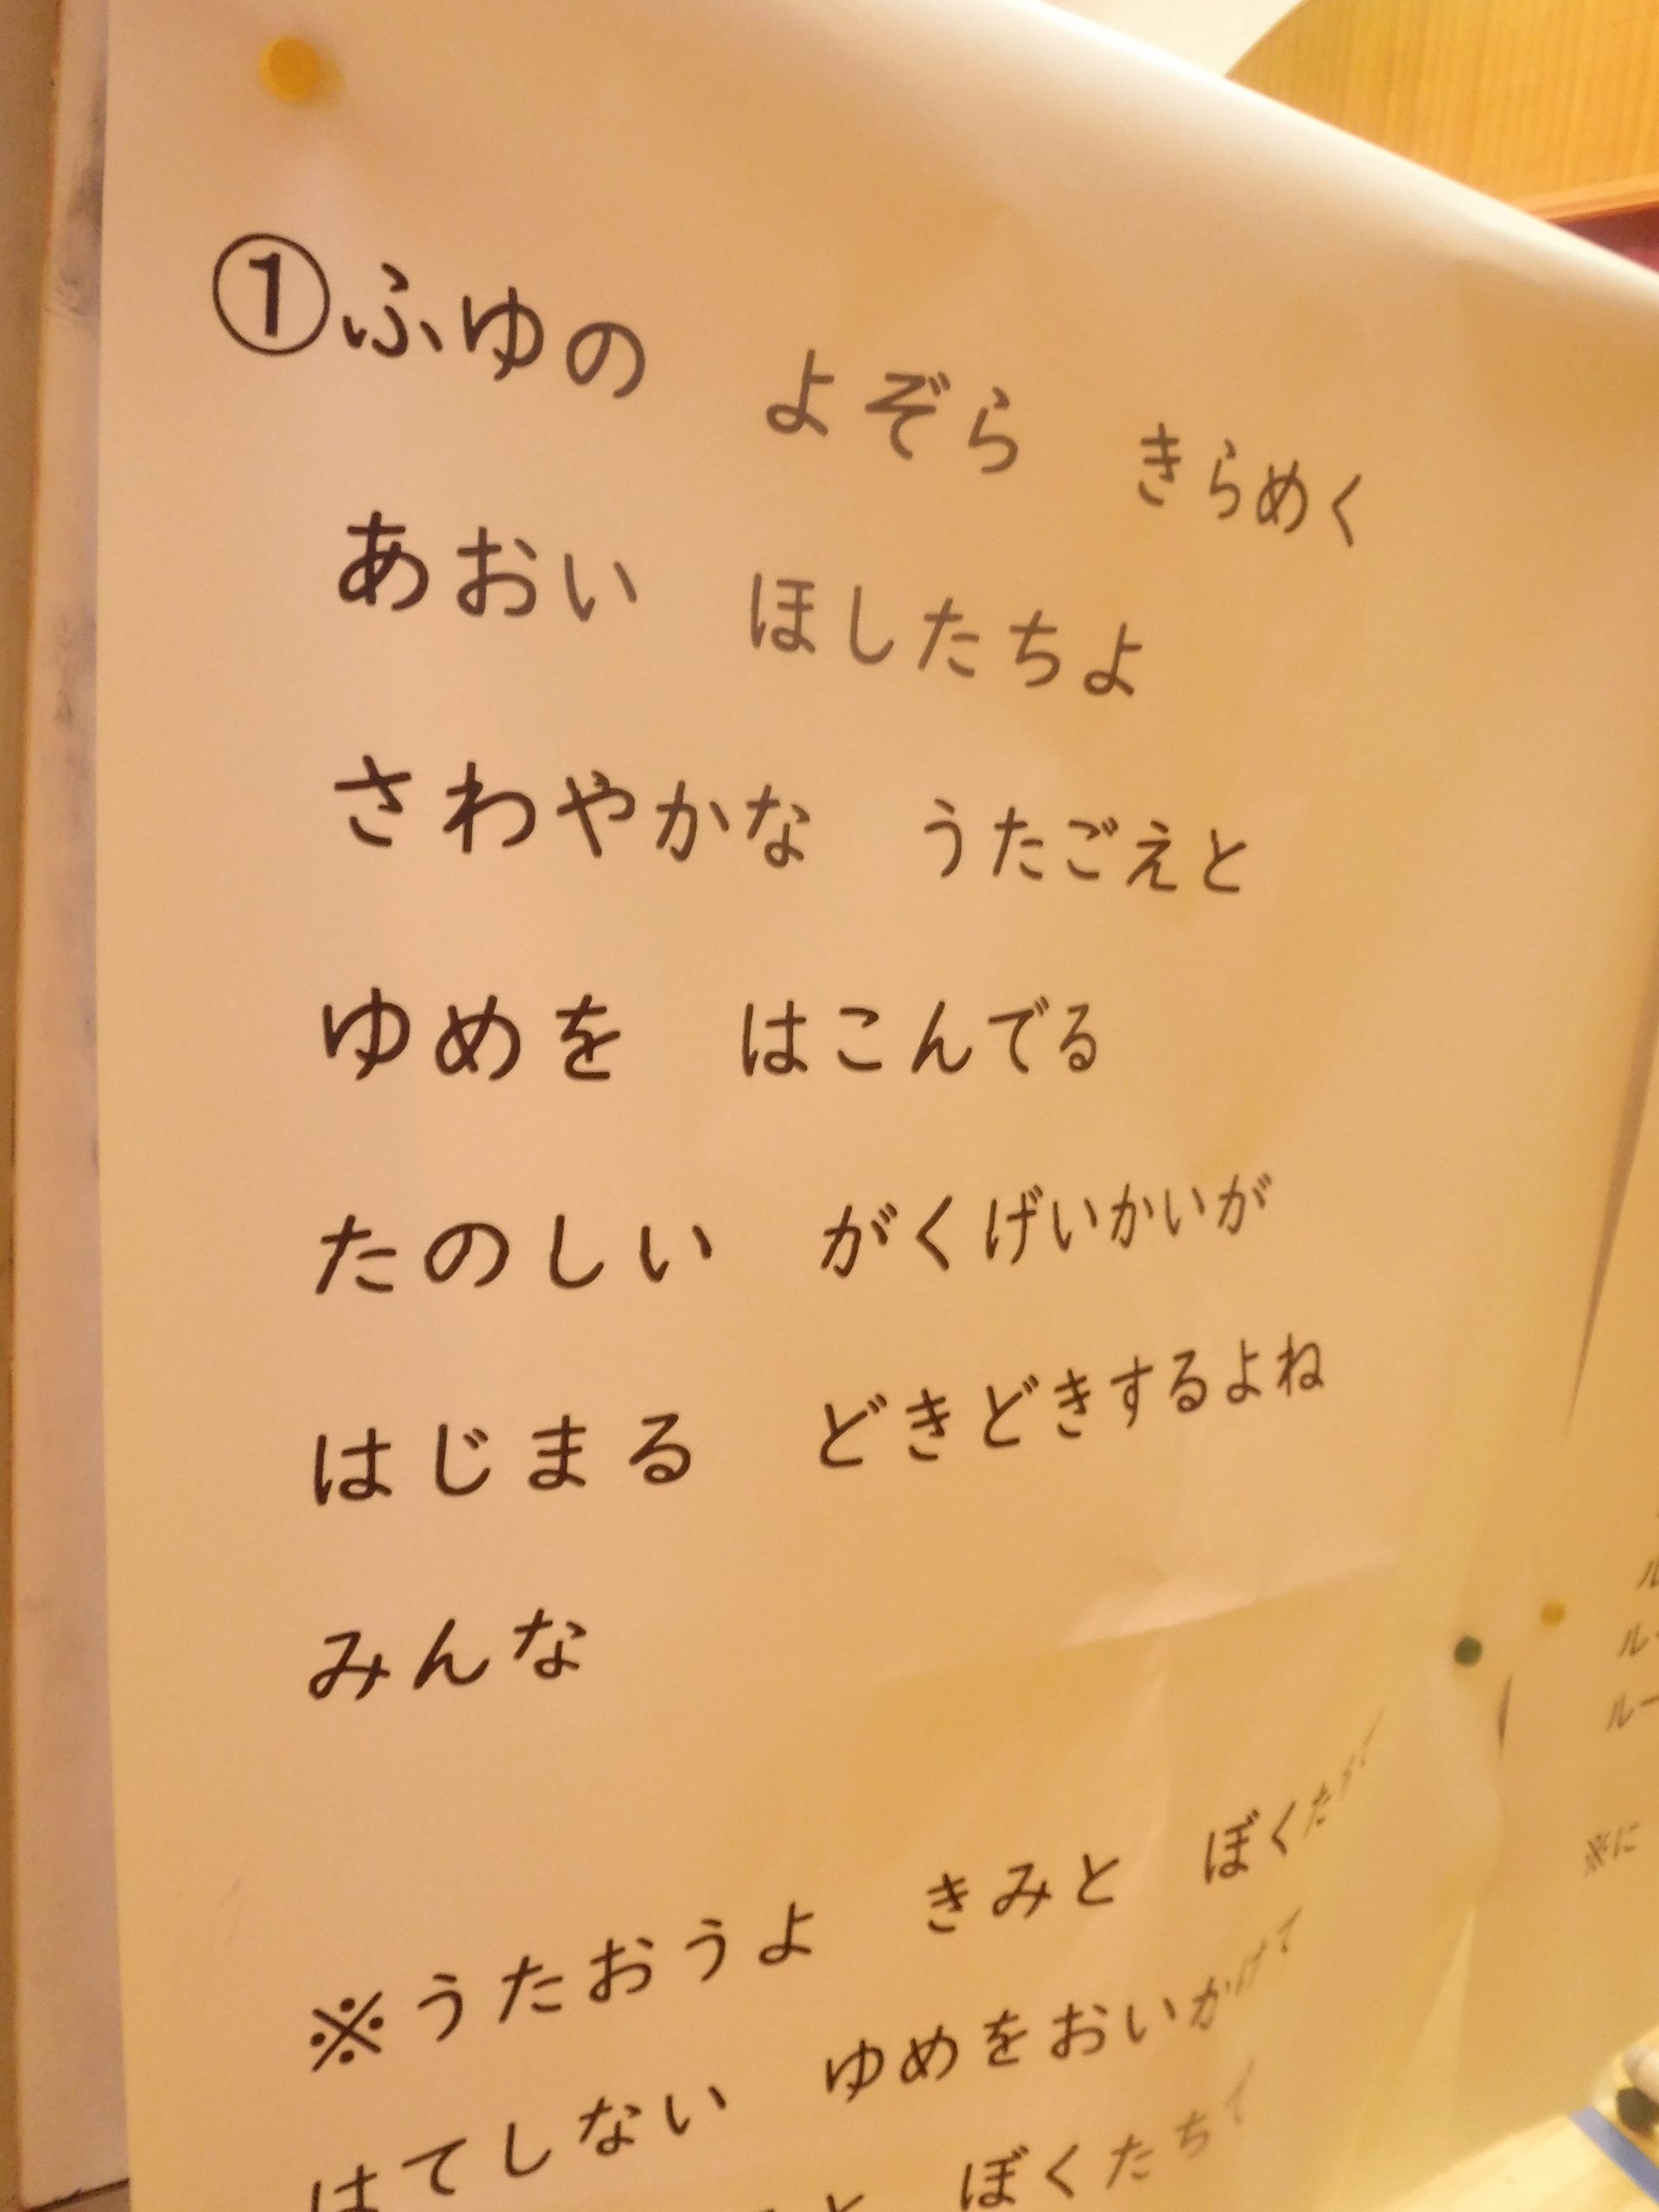 ①ふゆの　よぞら　きらめく
あおい　ほしたちよ
さわやかな　うたごえと
ゆめを　はこんでる
たのしい　がくげいかいが
はじまる　どきどきするよね
みんな
※うたおうよ　きみと
はてしない　ゆめをおいかけて
ぼくたち
ル
ル
ルー
※に